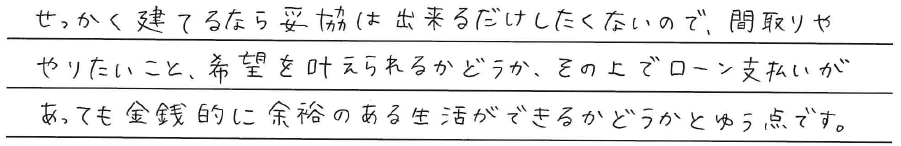 せっかく建てるなら妥協は出来るだけしたくないので、間取りや
やりたいこと、希望を叶えられるかどうか、その上でローン支払いが
あっても金銭的に余裕のある生活ができるかどうかとゆう点です。